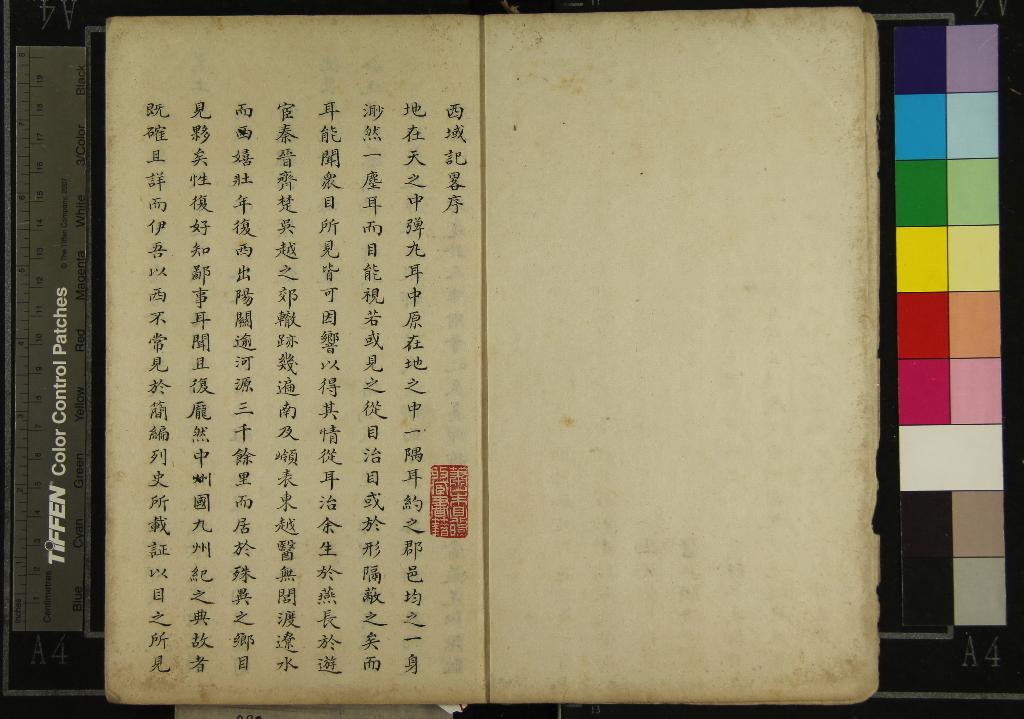 西域記畧序
地在天之中彈丸耳中原在地之中一隅耳約之郡邑均之一身
渺然一塵耳而目能視若或見之從目治目或於形隔蔽之矣而
耳能聞衆目所見皆可因響以得其情從耳治余生於燕長於遊
宦秦晉齊楚吳越之郊轍跡幾遍南及嶺表東越醫無閭渡遼水
而西嬉壯年復西出陽關逾河源三千餘里而居於殊異之鄉目
見夥矣性復好知鄙事耳聞且復龐然中州國九州紀之典故者
既確且詳而伊吾以西不常見於簡編列史所載証以目之所見
TIFFEN Color Control Patches
© The Tiffen Company, 2007
Inches
Centimetres
Blue
Cyan
Green
Yellow
Red
Magenta
White
3/Color
Black
A4
A4
A4